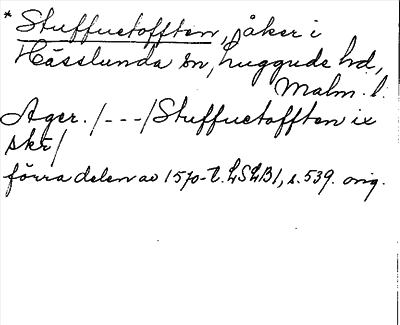 * Stuffuetofften, åker i
Hässlunda sn, Luggude hd,
Malm. l.
Ager. /---/ Stuffuetofften ix
skr/
förra delen av 1570-t. LSLB1, s. 539. orig.